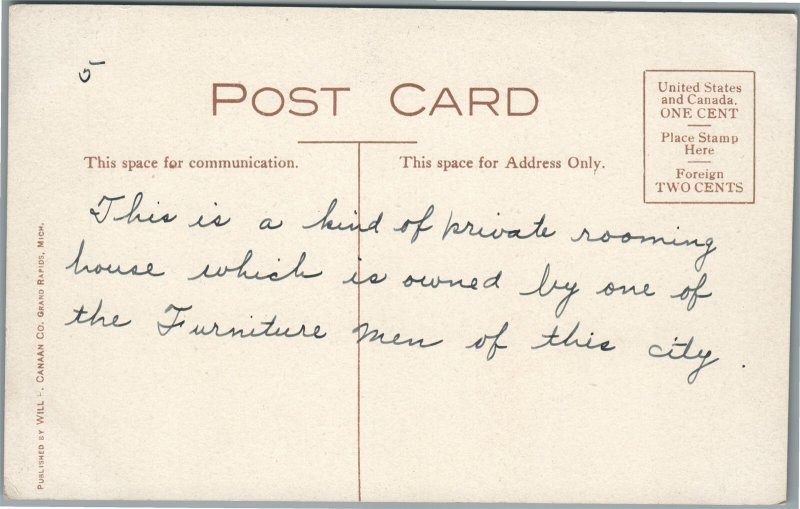 5
POST CARD
United States
and Canada.
ONE CENT
Place Stamp
Here
Foreign
TWO CENTS
This space for communication.
This space for Address Only.
This is a kind of private rooming
house which is owned by one of
the Furniture Men of this city.
PUBLISHED BY WILL CANAAN CO. GRAND RAPIDS, MICH.